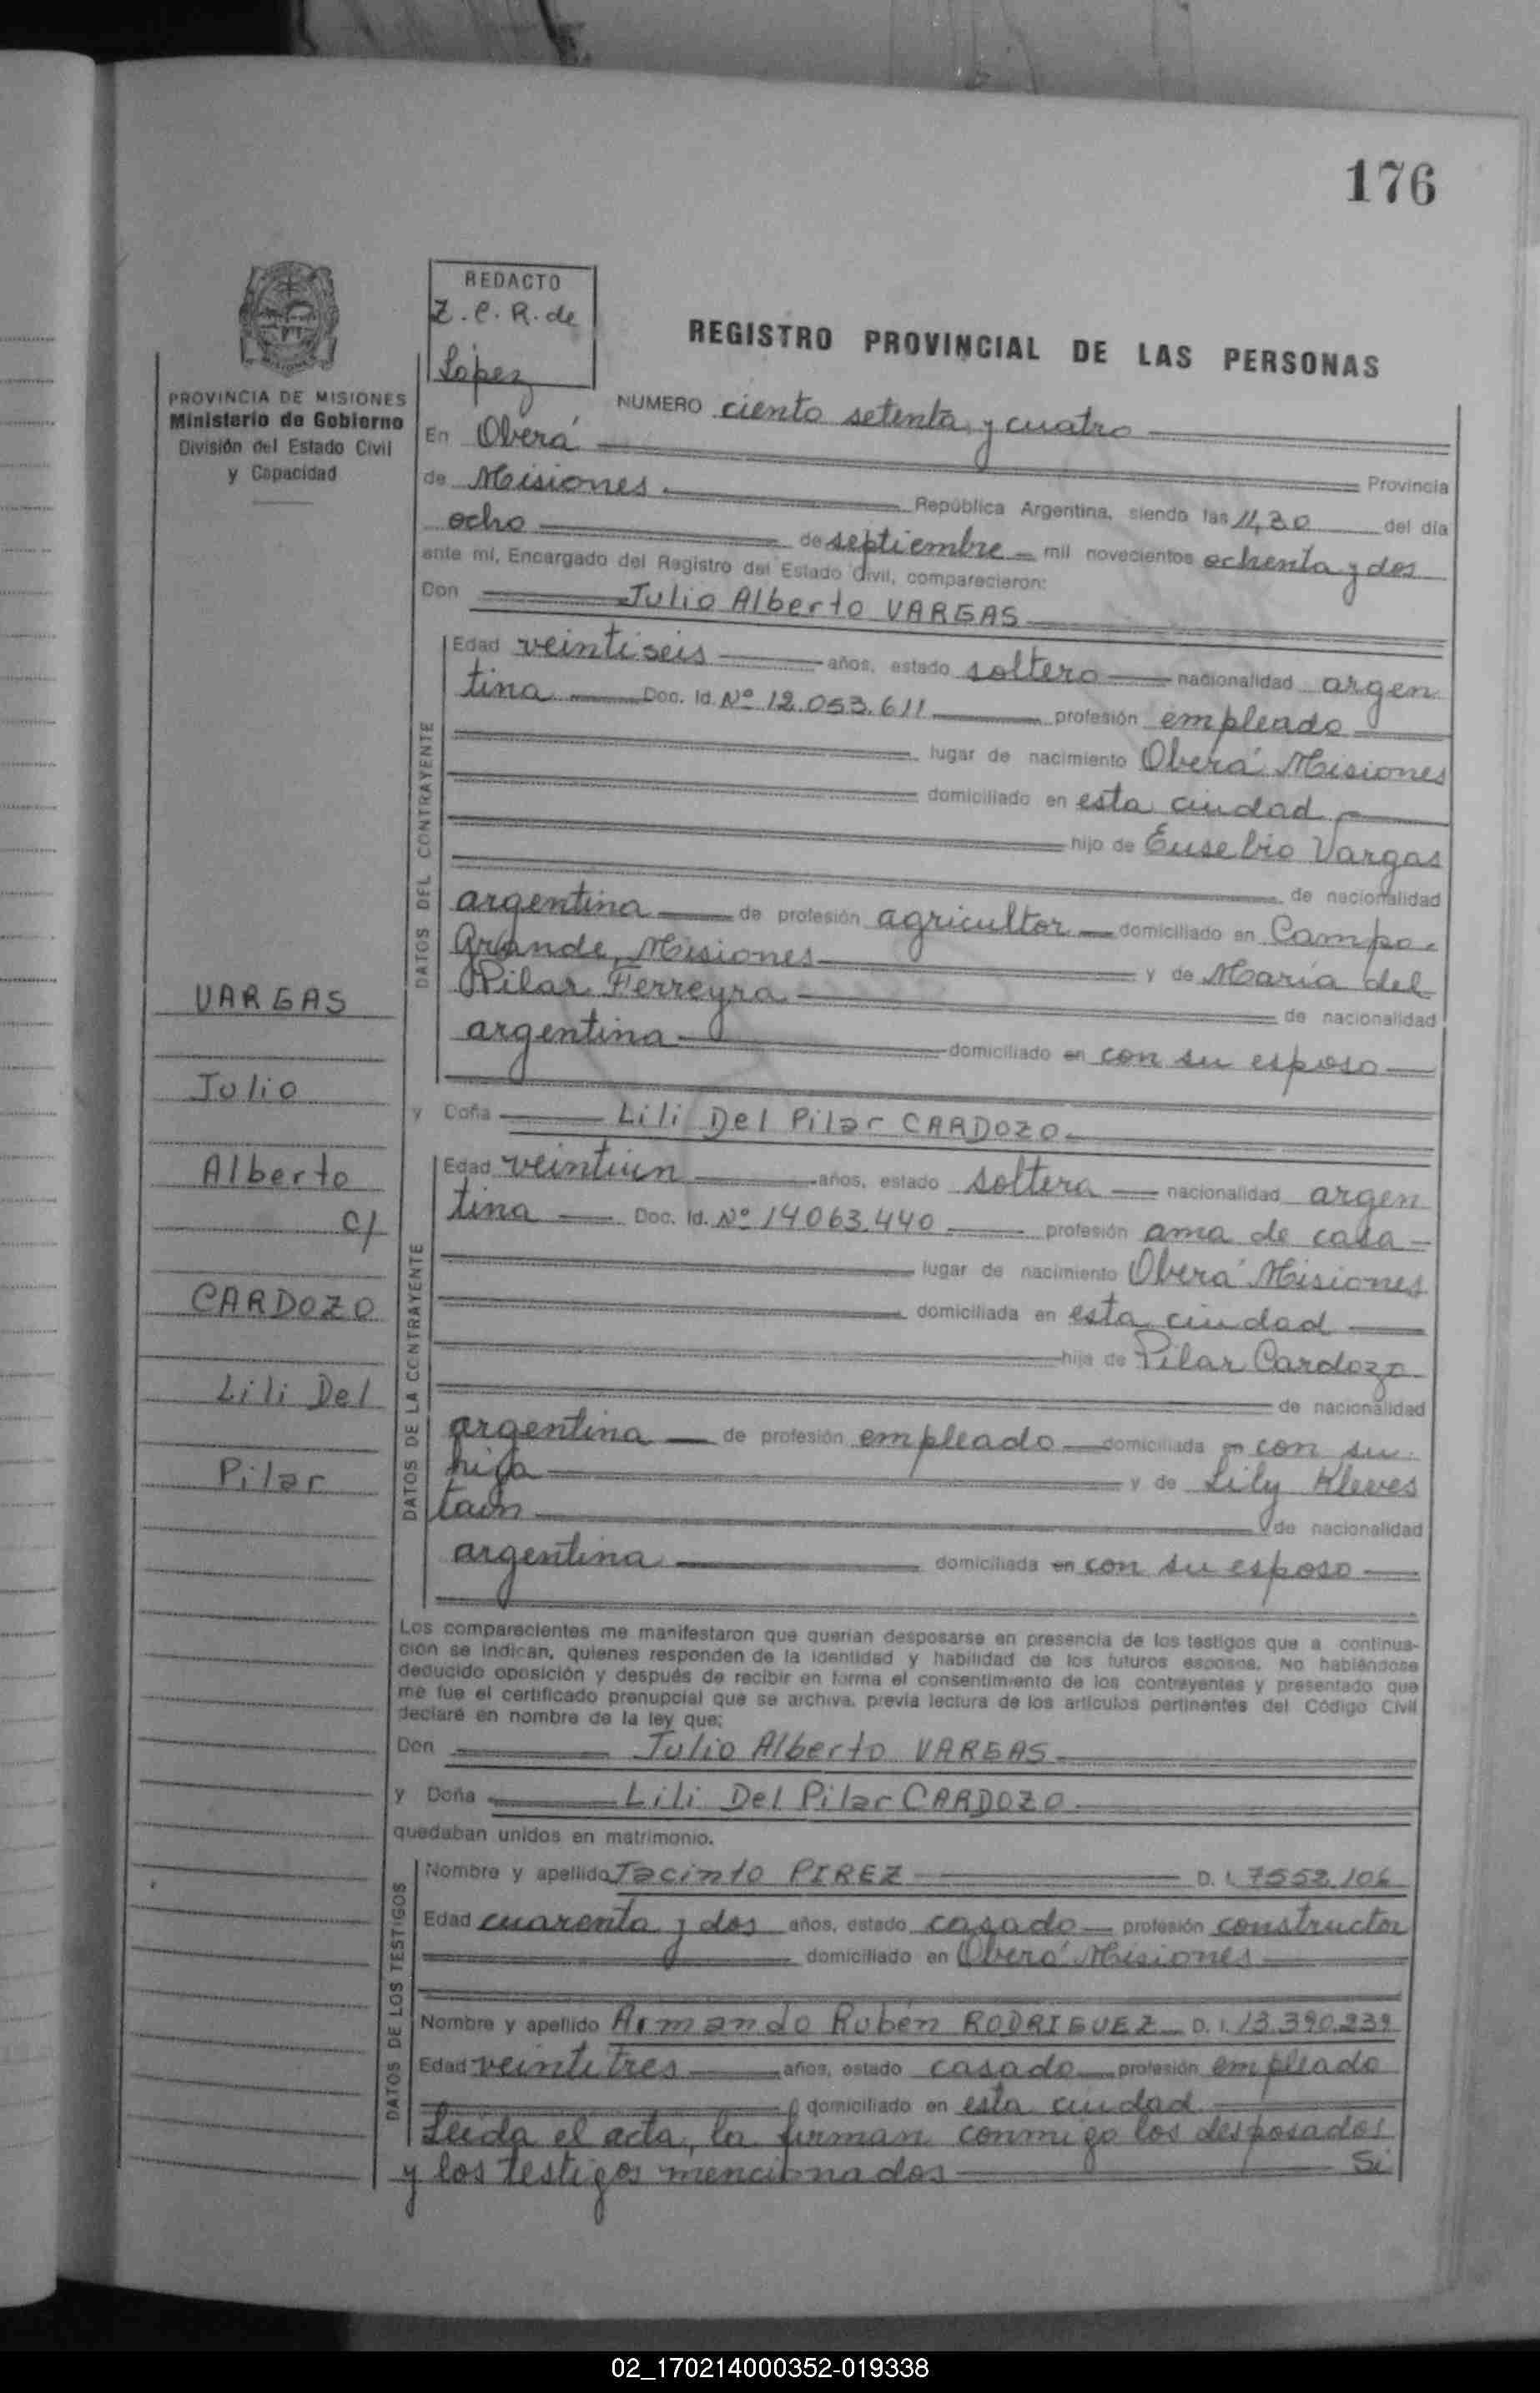 176
REDACTO
Z. C. R. de
López
REGISTRO PROVINCIAL DE LAS PERSONAS
PROVINCIA DE MISIONES
Ministerio de Gobierno
División del Estado Civil
y Capacidad
NUMERO ciento setenta y cuatro
En Oberá
Provincia
de Misiones República Argentina, siendo las 11,30 del día
ocho de septiembre mil novecientos ochenta y dos
ante mí, Encargado del Registro del Estado Civil, comparecieron:
Don Julio Alberto VARGAS
DATOS DEL CONTRAYENTE
Edad veintiseis años, estado soltero nacionalidad argen
tina Doc. Id. Nº 12.053.611 profesión empleado
lugar de nacimiento Oberá Misiones
domiciliado en esta ciudad
hijo de Eusebio Vargas
de nacionalidad
argentina de profesión agricultor domiciliado en Campo
Grande, Misiones y de María del
Pilar Ferreyra
de nacionalidad
argentina domiciliado en con su esposo
VARGAS
Julio
Alberto
c/
CARDOZO
Lili Del
Pilar
y Doña Lili Del Pilar CARDOZO
DATOS DE LA CONTRAYENTE
Edad veintiun años, estado soltera nacionalidad argen
tina Doc. Id. Nº 14063.440 profesión ama de casa
lugar de nacimiento Oberá Misiones
domiciliada en esta ciudad
hija de Pilar Cardozo
de nacionalidad
argentina de profesión empleado domiciliada en con su
hija y de Lily
de nacionalidad
argentina domiciliada en con su esposo
Los comparecientes me manifestaron que querían desposarse en presencia de los testigos que a continua-
ción se indican, quienes responden de la identidad y habilidad de los futuros esposos. No habiéndose
deducido oposición y después de recibir en forma el consentimiento de los contrayentes y presentado que
me fue el certificado prenupcial que se archiva, previa lectura de los artículos pertinentes del Código Civil
declaré en nombre de la ley que:
Don Julio Alberto VARGAS
y Doña Lili Del Pilar CARDOZO
quedaban unidos en matrimonio.
DATOS DE LOS TESTIGOS
Nombre y apellido Jacinto PIREZ D. I. 7552.106
Edad cuarenta y dos años, estado casado profesión constructor
domiciliado en Oberá Misiones
Nombre y apellido Armando Rubén RODRIGUEZ D. I. 13.390.239
Edad veintitres años, estado casado profesión empleado
domiciliado en esta ciudad
Leída el acta, la firman conmigo los desposados
y los testigos mencionados Si
02_170214000352-019338